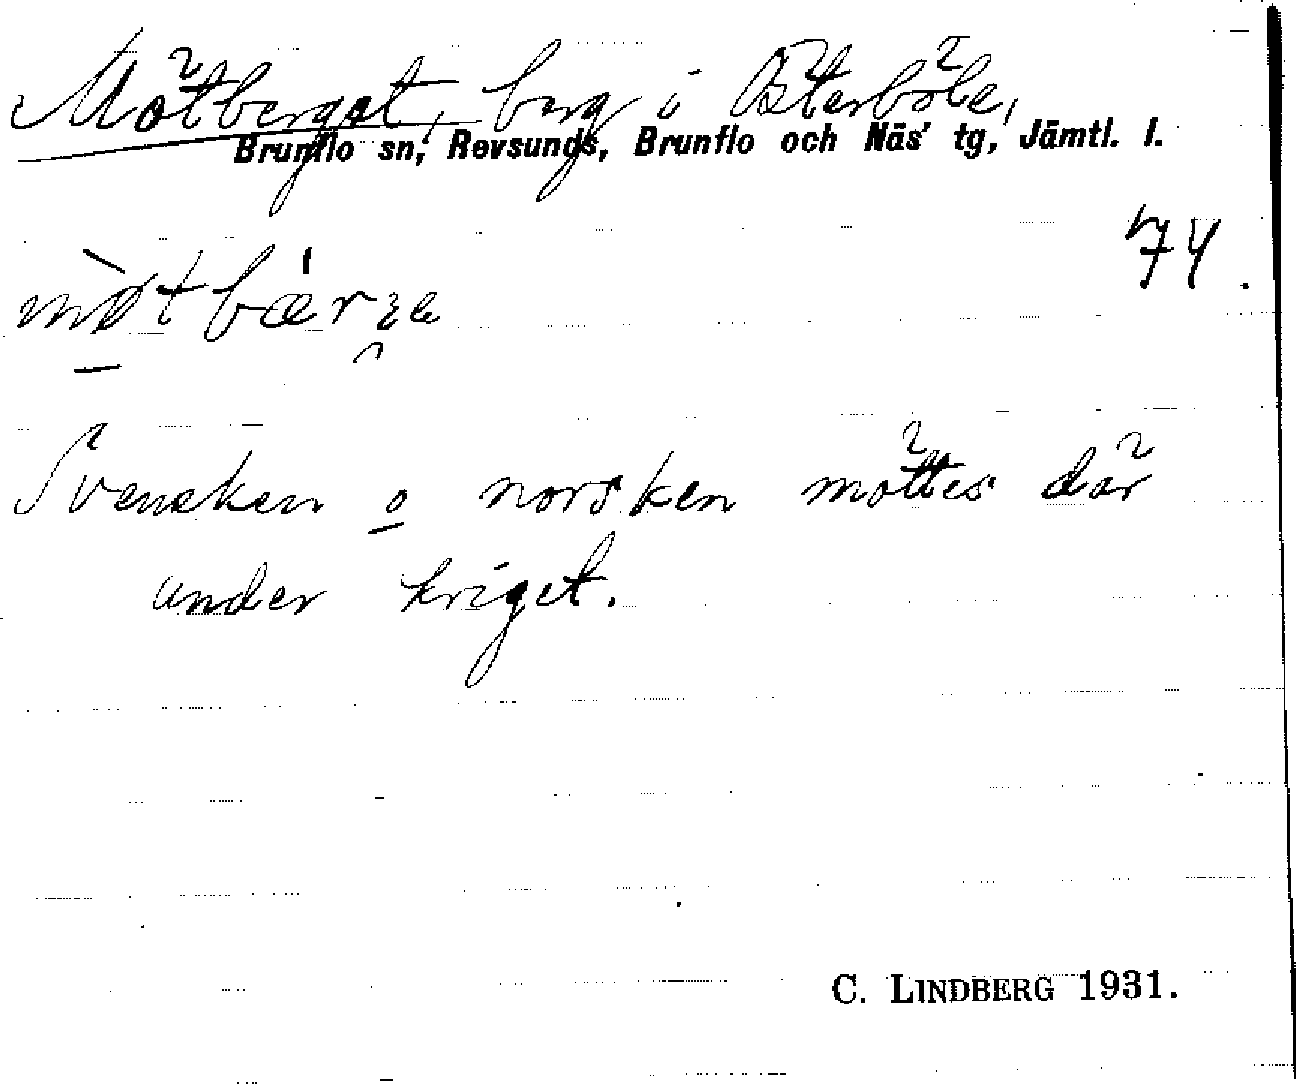 Mötberget, berg i Österböle,
Brunflo sn, Revsunds, Brunflo och Näs' tg, Jämtl. l.
74.
Svensken o norsken möttes där
under kriget.
C. LINDBERG 1931.